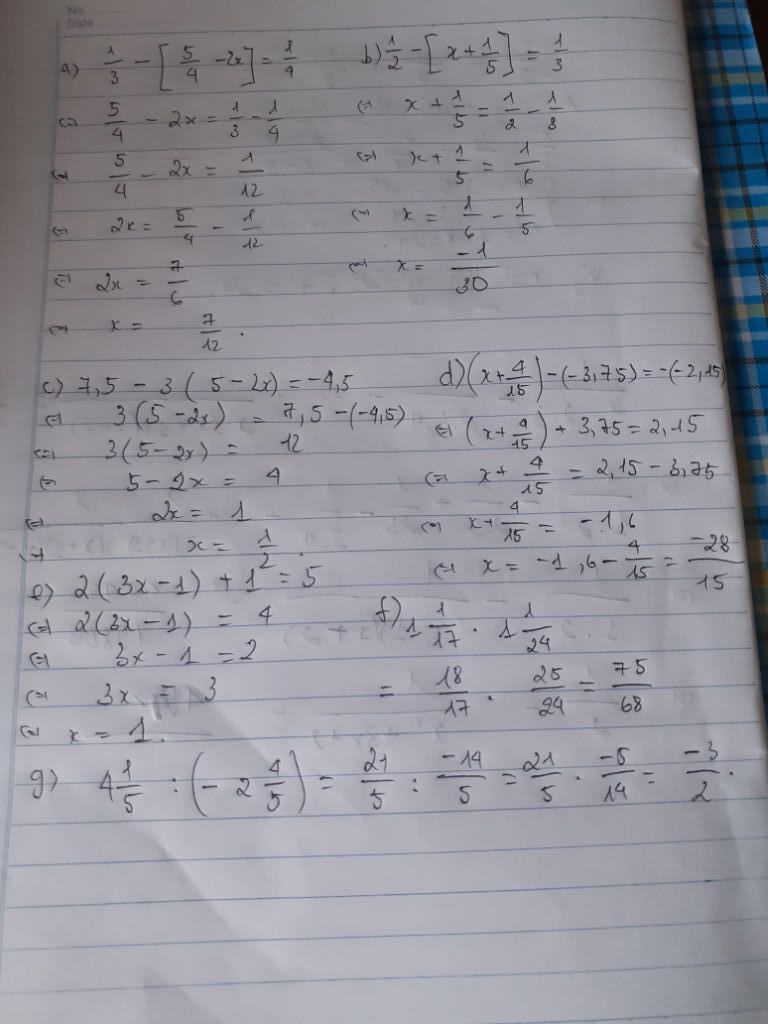 No. ........
Date
a) 1/3 - [5/4 - 2x] = 1/4
⇔ 5/4 - 2x = 1/3 - 1/4
⇔ 5/4 - 2x = 1/12
⇔ 2x = 5/4 - 1/12
⇔ 2x = 7/6
⇔ x = 7/12.
b) 1/2 - [x + 1/5] = 1/3
⇔ x + 1/5 = 1/2 - 1/3
⇔ x + 1/5 = 1/6
⇔ x = 1/6 - 1/5
⇔ x = -1/30
c) 7,5 - 3(5 - 2x) = -4,5
⇔ 3(5 - 2x) = 7,5 - (-4,5)
⇔ 3(5 - 2x) = 12
⇔ 5 - 2x = 4
⇔ 2x = 1
⇔ x = 1/2.
d) (x + 4/15) - (-3,75) = -(-2,15)
⇔ (x + 4/15) + 3,75 = 2,15
⇔ x + 4/15 = 2,15 - 3,75
⇔ x + 4/15 = -1,6
⇔ x = -1,6 - 4/15 = -28/15
e) 2(3x - 1) + 1 = 5
⇔ 2(3x - 1) = 4
⇔ 3x - 1 = 2
⇔ 3x = 3
⇔ x = 1.
f) 1 1/17 . 1 1/24
= 18/17 . 25/24 = 75/68
g) 4 1/5 : (-2 4/5) = 21/5 : -14/5 = 21/5 . -5/14 = -3/2.